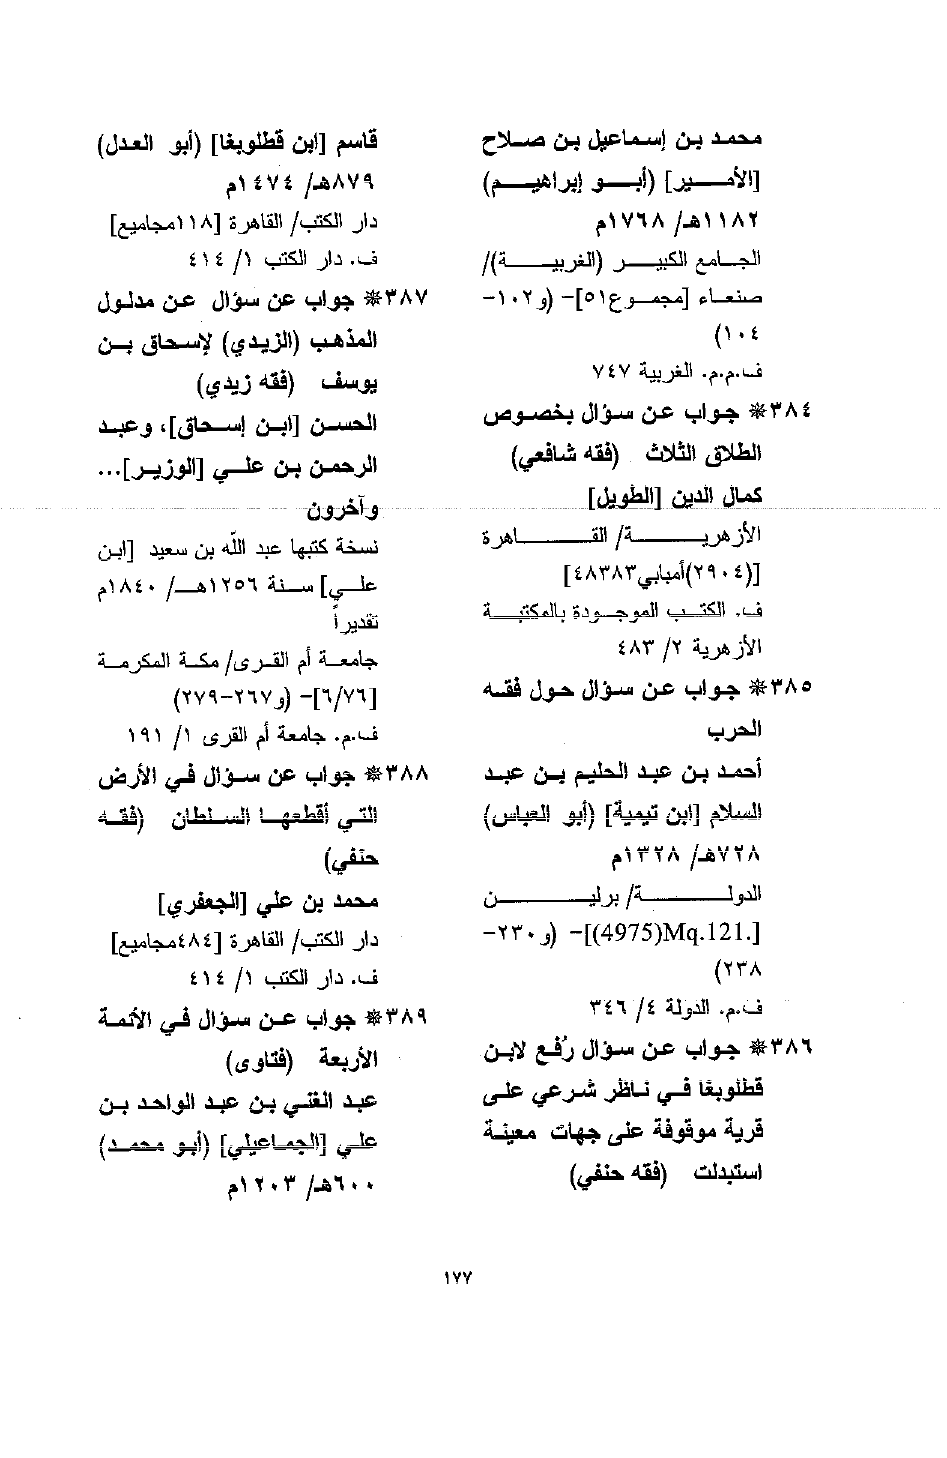 محمد بن إسماعيل بن صلاح
[الأمير] (أبو إبراهيم)
١١٨٢هـ/ ١٧٦٨م
الجامع الكبير (الغربية)/
صنعاء [مجموع٥١]- (و١٠٢-
١٠٤)
ف.م.م. الغربية ٧٤٧
٣٨٤※ جواب عن سؤال بخصوص
الطلاق الثلاث (فقه شافعي)
كمال الدين [الطويل]
الأزهرية/ القاهرة
[(٢٩٠٤)أمبابي٤٨٣٨٣]
ف. الكتب الموجودة بالمكتبة
الأزهرية ٢/ ٤٨٣
٣٨٥※ جواب عن سؤال حول فقه
الحرب
أحمد بن عبد الحليم بن عبد
السلام [ابن تيمية] (أبو العباس)
٧٢٨هـ/ ١٣٢٨م
الدولة/ برلين
[.Mq.121(4975)]- (و٢٣٠-
٢٣٨)
ف.م. الدولة ٤/ ٣٤٦
٣٨٦※ جواب عن سؤال رُفع لابن
قطلوبغا في ناظر شرعي على
قرية موقوفة على جهات معينة
استبدلت (فقه حنفي)
قاسم [ابن قطلوبغا] (أبو العدل)
٨٧٩هـ/ ١٤٧٤م
دار الكتب/ القاهرة [١١٨مجاميع]
ف. دار الكتب ١/ ٤١٤
٣٨٧※ جواب عن سؤال عن مدلول
المذهب (الزيدي) لإسحاق بن
يوسف (فقه زيدي)
الحسن [ابن إسحاق]، وعبد
الرحمن بن علي [الوزير]...
وآخرون
نسخة كتبها عبد اللّه بن سعيد [ابن
علي] سنة ١٢٥٦هـ/ ١٨٤٠م
تقديراً
جامعة أم القرى/ مكة المكرمة
[٦/٧٦]- (و٢٦٧-٢٧٩)
ف.م. جامعة أم القرى ١/ ١٩١
٣٨٨※ جواب عن سؤال في الأرض
التي أقطعها السلطان (فقه
حنفي)
محمد بن علي [الجعفري]
دار الكتب/ القاهرة [٤٨٤مجاميع]
ف. دار الكتب ١/ ٤١٤
٣٨٩※ جواب عن سؤال في الأئمة
الأربعة (فتاوى)
عبد الغني بن عبد الواحد بن
علي [الجماعيلي] (أبو محمد)
٦٠٠هـ/ ١٢٠٣م
١٧٧